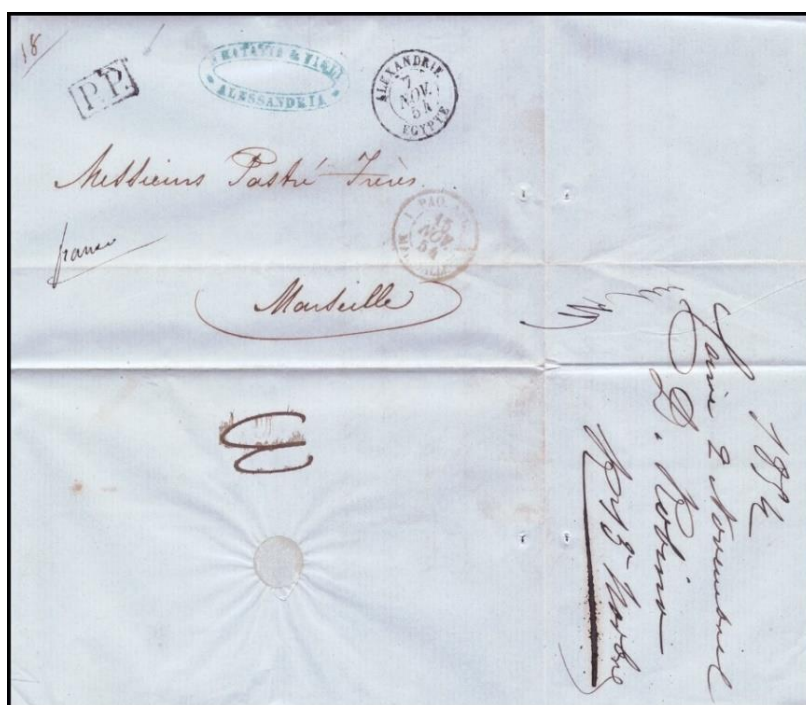 18
P.P.
ALESSANDRIA
ALEXANDRIE
7
NOV.
54
EGYPTE
Messieurs Pastré Frères
franco
PAQ.
15
NOV.
54
Marseille
1854
2 Novembre
D. Robino